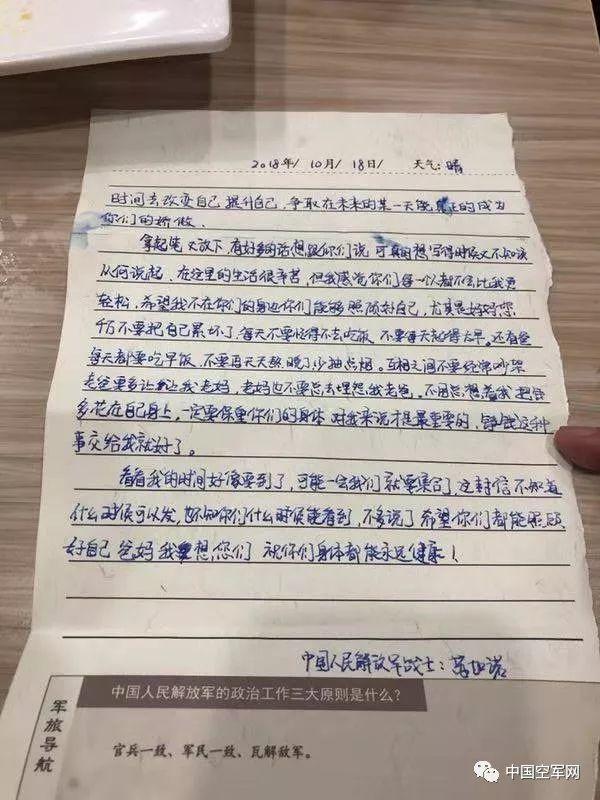 2018年/ 10月/ 18日/ 天气：晴
时间去改变自己 提升自己，争取在未来的某一天能 正的成为
你们的骄傲．
拿起笔 又放下 有好多的话想跟你们说，可真的想写得时候又不知该
从何说起．在这里的生活很辛苦，但我感觉你们每一个人都不会比我更
轻松，希望我不在你们的身边你们能够照顾好自己，尤其是妈妈您，
千万不要把自己累坏了，每天不要忙得不去吃饭 不要每天起得太早。还有爸
每天都要吃早饭，不要再天天熬 晚了 少抽点烟。互相之间不要经常吵架
老爸要多让让我老妈，老妈也不要总去埋怨我老爸。不用总想着我 把钱
多花在自己身上，一定要保重你们的身体 对我来说才是最重要的，挣钱这种
事交给我就好了。
看看我的时间好像要到了，可能一会我们就要集合了，这封信不知道
什么时候可以发，也不知你们什么时候能看到，不多说了 希望你们都能照顾
好自己 爸妈 我 想您们 祝你们身体都能永远健康！
中国人民解放军战士：
军旅导航
中国人民解放军的政治工作三大原则是什么？
官兵一致、军民一致、瓦解敌军。
中国空军网